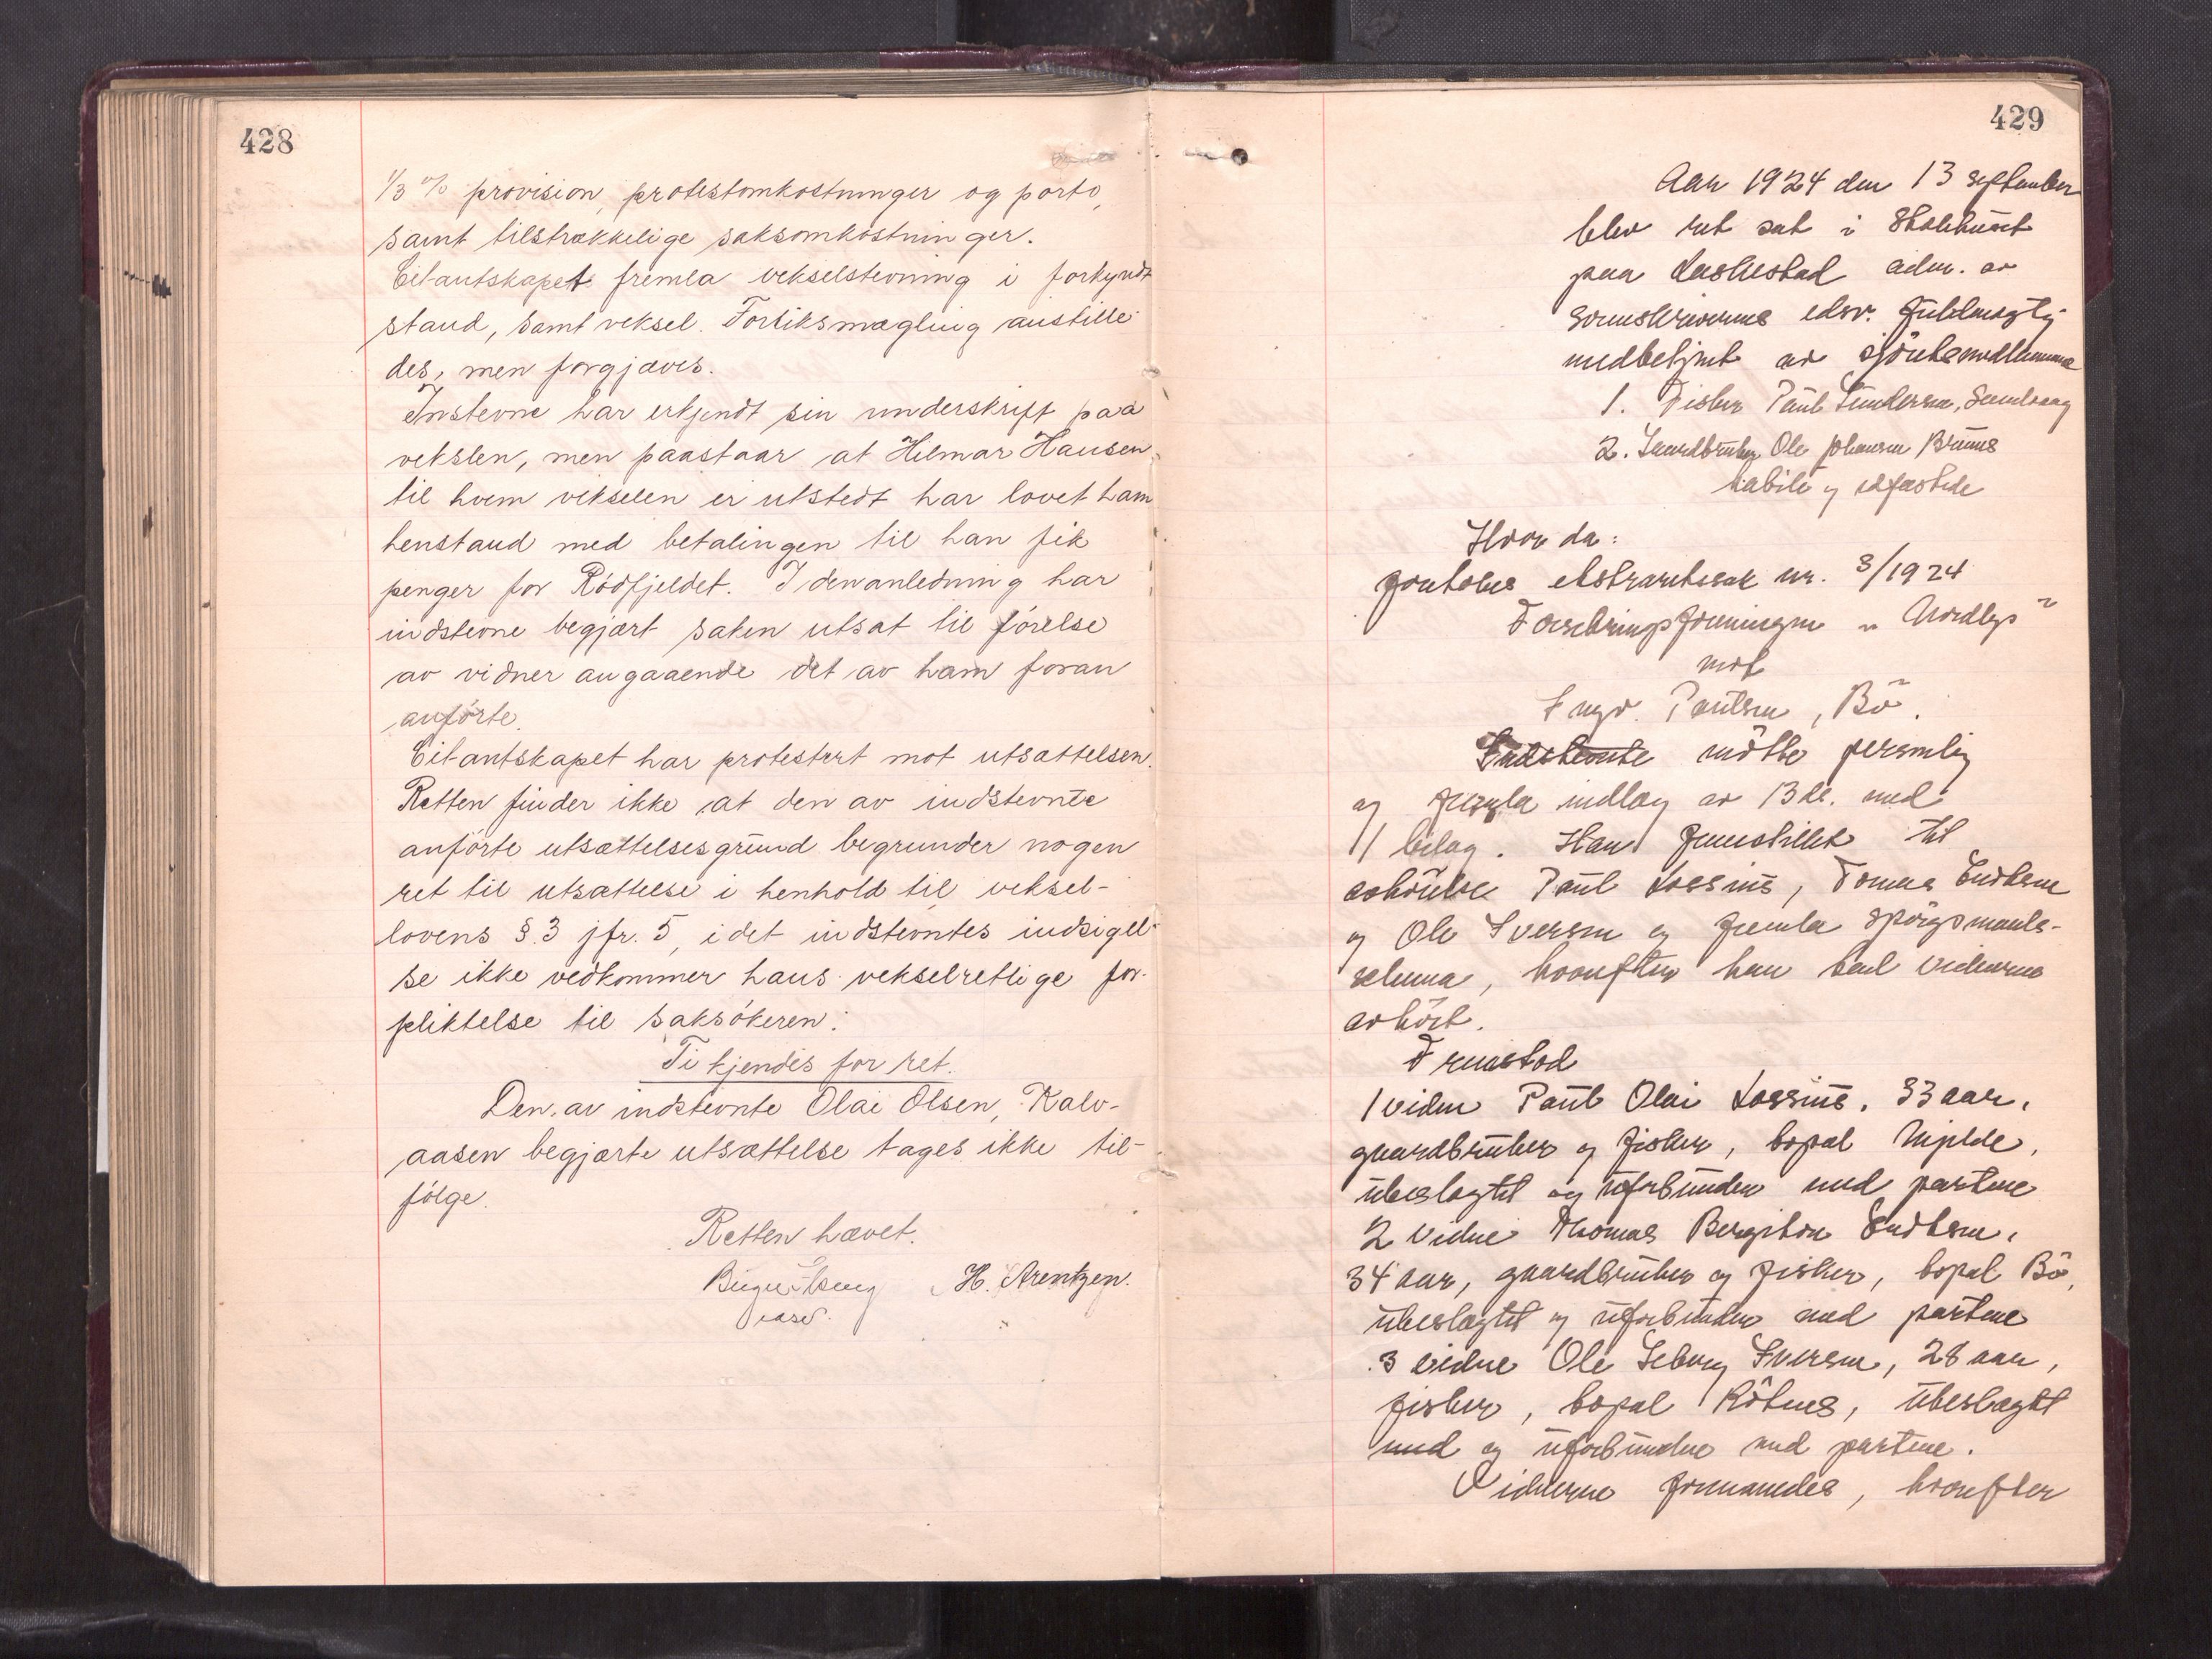 428
1/3 % provision, protestomkostninger og porto,
samt tilstrækkelige saksomkostninger.
Citantskapet fremla vekselstevning i forkyndt
stand, samt veksel. Forliksmægling anstille-
des, men forgjæves.
Instevne har erkjendt sin underskrift paa
vekslen, men paastaar at Hilmar Hansen,
til hvem vekselen er utstedt har lovet ham
henstand med betalingen til han fik
penger for Rödfjeldet. I den anledning har
indstevne begjært saken utsat til förelse
av vidner angaaende det av ham foran
anförte.
Citantskapet har protestert mot utsættelsen.
Retten finder ikke at den av indstevnte
anförte utsættelsesgrund begrunder nogen
ret til utsættelse i henhold til veksel-
lovens § 3 jfr. 5, idet indstevntes indsigel-
se ikke vedkommer hans vekselretlige for-
pliktelse til saksökeren:
Ti kjendes for ret.
Den av indstevnte Olai Olsen, Kalv-
aasen begjærte utsættelse tages ikke til-
fölge.
Retten hævet.
H. Arentzen.
429
Aar 1924 den 13 september
blev ret sat i
paa adm. av
sorenskriverens edsv. fuldmægtig
medbetjent av sjöretsmedlemmene
1. Fisker Paul
2. Gaardbruker Ole Johansen
habile og edfæstede
Hvor da:
foretokes ekstraretssak nr. 3/1924
Forsikringsforeningen „Nordlys"
mot
Ingv. Paulsen, Bö.
Indstevnte mötte personlig
og fremla indlæg av 13 ds. med
1 bilag. Han fremstillet til
avhörelse Paul Kossius, Tomas Endresen
og Ole Iversen og fremla spörgsmaals-
schema, hvorefter han bad vidnerne
avhört.
Fremstod
1 vidne Paul Olai Kossius, 33 aar,
gaardbruker og fisker, bopæl Mjelde,
ubeslegtet og uforbunden med partene
2 vidne Thomas Bergiton Endresen,
34 aar, gaardbruker og fisker, bopæl Bö,
ubeslegtet og uforbunden med partene
3 vidne Ole Iversen, 28 aar,
fisker, bopæl Rötnes, ubeslegtet
med og uforbunden med partene.
Vidnerne formanedes, hvorefter